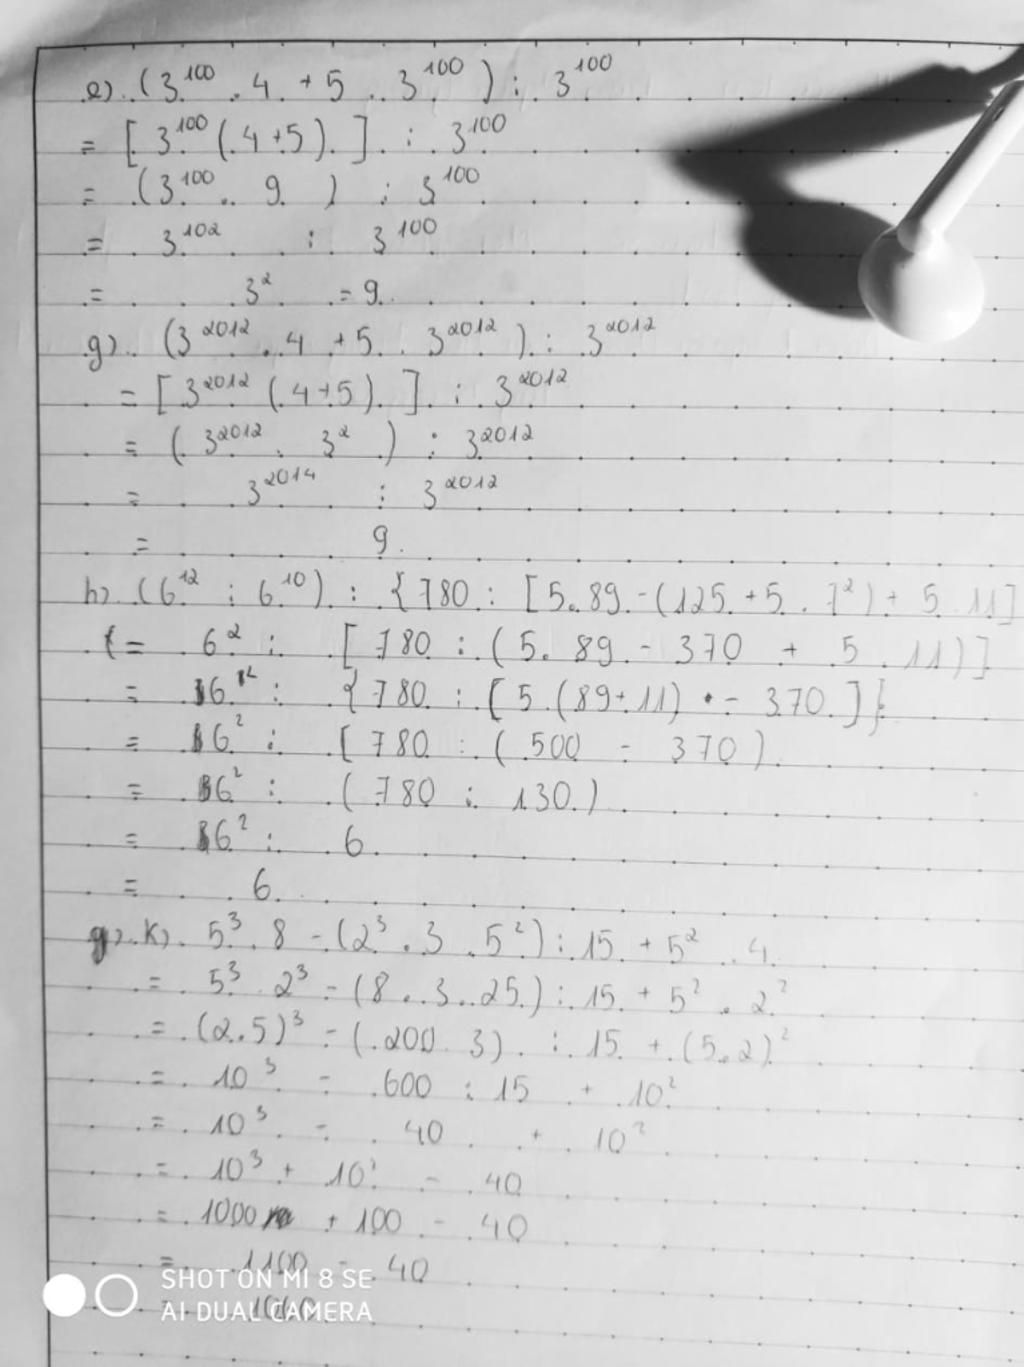 e) (3¹⁰⁰ . 4 + 5 . 3¹⁰⁰) : 3¹⁰⁰
= [3¹⁰⁰ (4+5)] : 3¹⁰⁰
= (3¹⁰⁰ . 9) : 3¹⁰⁰
= 3¹⁰² : 3¹⁰⁰
= 3² = 9
g) (3²⁰¹² . 4 + 5 . 3²⁰¹²) : 3²⁰¹²
= [3²⁰¹² (4+5)] : 3²⁰¹²
= (3²⁰¹² . 3²) : 3²⁰¹²
= 3²⁰¹⁴ : 3²⁰¹²
= 9
h) (6¹² : 6¹⁰) : {780 : [5.89 - (125 + 5 . 7²) + 5 . 11]
= 6² : [780 : (5 . 89 - 370 + 5 . 11)]
= 6² : {780 : [5 . (89+11) - 370]}
= 6² : [780 : (500 - 370)
= 6² : (780 : 130)
= 6² : 6
= 6
k) 5³ . 8 - (2³ . 3 . 5²) : 15 + 5² . 4
= 5³ . 2³ - (8 . 3 . 25) : 15 + 5² . 2²
= (2.5)³ - (200 . 3) : 15 + (5.2)²
= 10³ - 600 : 15 + 10²
= 10³ - 40 + 10²
= 10³ + 10² - 40
= 1000 + 100 - 40
= 1100 - 40
= 1060
SHOT ON MI 8 SE
AI DUAL CAMERA